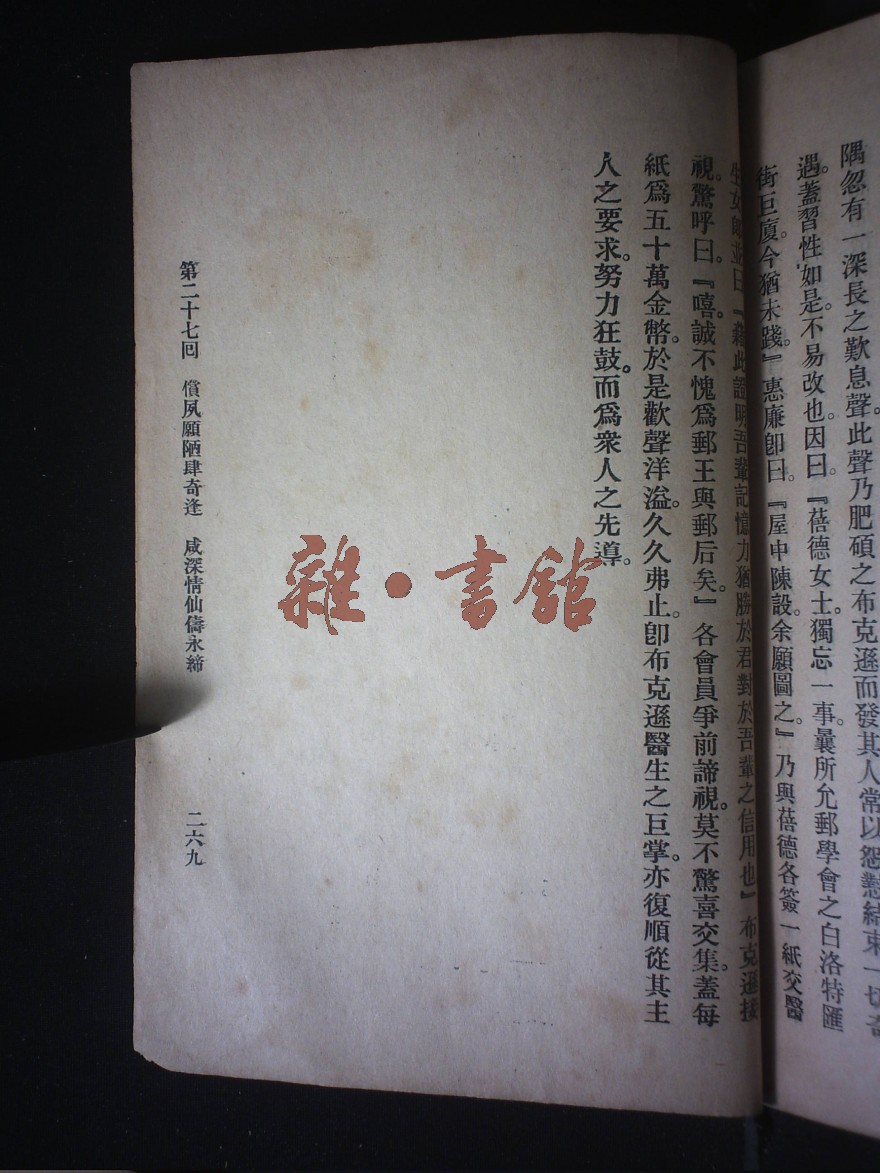 隅忽有一深長之歎息聲。此聲乃肥碩之布克遜而發其人常以怨懟結束一切奇
遇。蓋習性如是。不易改也。因曰。『蓓德女士。獨忘一事。曩所允郵學會之白洛特匯
街巨廈。今猶未踐。』惠廉卽曰。『屋中陳設。余願圖之。』乃與蓓德各簽一紙交醫
生女郎並曰『藉此證明吾輩記憶力猶勝於君對於吾輩之信用也』布克遜接
視。驚呼曰。『嘻。誠不愧爲郵王與郵后矣。』各會員爭前諦視。莫不驚喜交集。蓋每
紙爲五十萬金幣。於是歡聲洋溢。久久弗止。卽布克遜醫生之巨掌。亦復順從其主
人之要求。努力狂鼓。而爲衆人之先導。
第二十七回 償夙願陋肆奇逢 咸深情仙儔永締 二六九
雜·書館